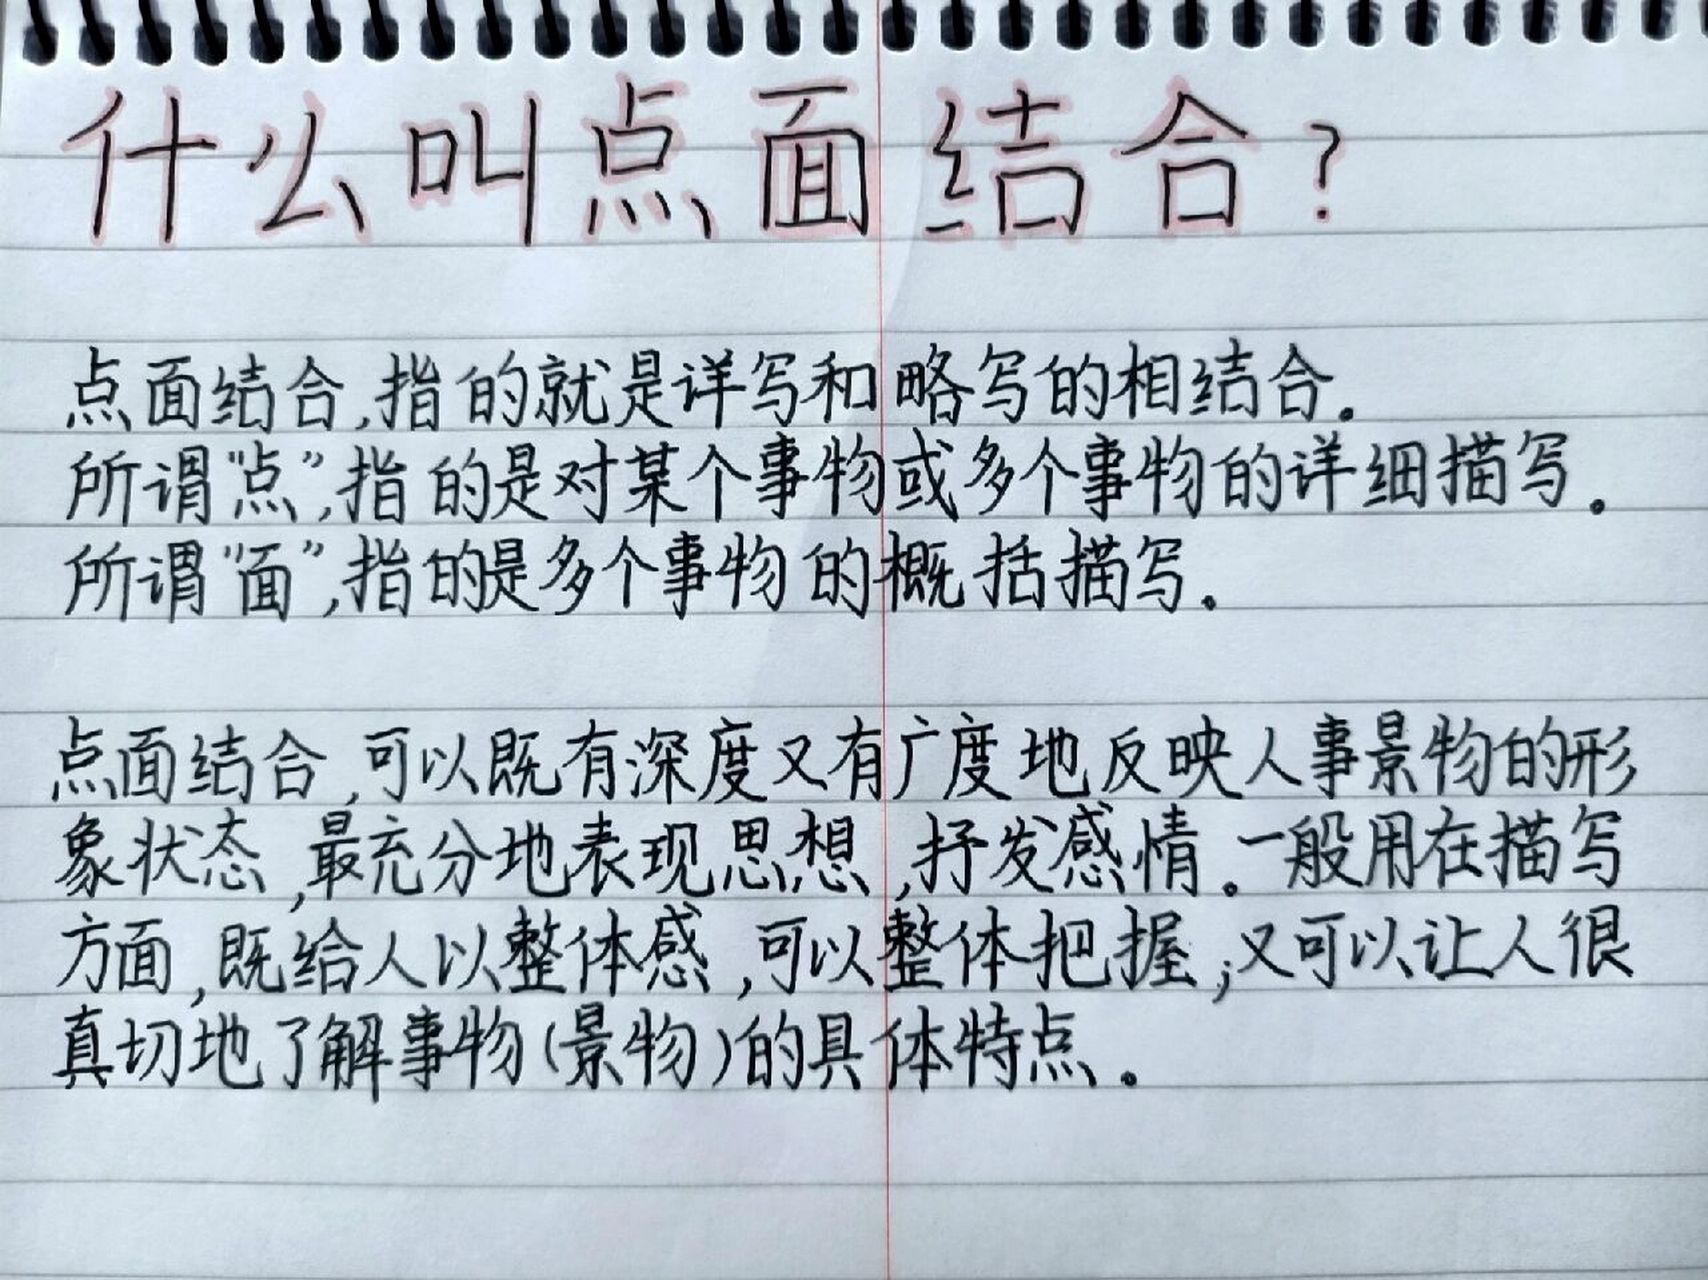 什么叫点面结合?
点面结合,指的就是详写和略写的相结合。
所谓“点”,指的是对某个事物或多个事物的详细描写。
所谓“面”,指的是多个事物的概括描写。
点面结合,可以既有深度又有广度地反映人事景物的形
象状态,最充分地表现思想,抒发感情。一般用在描写
方面,既给人以整体感,可以整体把握;又可以让人很
真切地了解事物(景物)的具体特点。